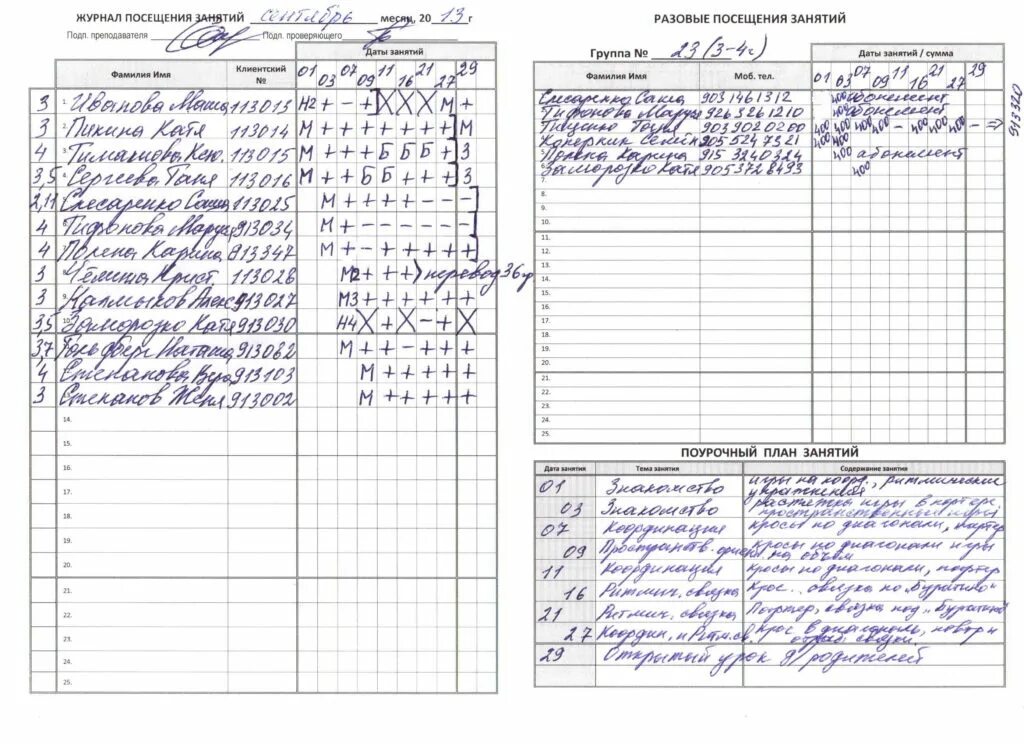 ЖУРНАЛ ПОСЕЩЕНИЯ ЗАНЯТИЙ сентябрь месяц, 2013 г
Подп. преподавателя Подп. проверяющего
Даты занятий
Фамилия Имя Клиентский №
01 03 07 09 11 16 21 27 29
3 1. Иванова Маша 113013 Н2 + - + ] X X X М +
3 2. Пикина Катя 113014 М + + + + + + + ] М
4 3. Тимашова Ксю. 113015 М + + + Б Б Б + ] 3
3,5 4. Сергеева Таня 113016 М + + Б Б + + + ] 3
2,11 Слесаренко Саша 113025 М + + + + - - - ]
4 Тифонова Маруся 913034 М + - - - - - - ]
4 Полена Карина 913347 М + - + + + + + ]
3 Челиша Крист. 113028 М2 + + + ) перевод 36 г
3 9. Калмыков Алекс 913027 М3 + + + + + +
3,5 10. Заморозко Катя 913030 Н4 X + X - + X
3,7 Гольдберг Наташа 913032 М + + - + + +
4 Степанова Вера 913103 М + + + + +
3 Степанов Женя 913002 М + + + + +
14.
15.
16.
17.
18.
19.
20.
21.
22.
23.
24.
25.
РАЗОВЫЕ ПОСЕЩЕНИЯ ЗАНЯТИЙ
Группа № 23 (3-4г)
Даты занятий / сумма
Фамилия Имя Моб. тел.
01 03 07 09 11 16 21 27 29
Слесаренко Саша 903 1461312 400 абонемент
Тифонова Маруся 926 3261210 400 абонемент
903 9020200 400 400 400 400 - 400 400 400 - => 913320
905 5247321 400 400
Полена Карина 915 3240324 400 абонемент
Заморозко Катя 905 3728493 400
7.
8.
9.
10.
11.
12.
13.
14.
15.
16.
17.
18.
19.
20.
21.
22.
23.
24.
25.
ПОУРОЧНЫЙ ПЛАН ЗАНЯТИЙ
Дата занятия Тема занятия Содержание занятия
01 Знакомство игры на коорд., ритмические упражнения
03 Знакомство растяжка игры в партере пространственные игры
07 Координация кросы по диагонали, партер
09 Пространств. ориент. кросы по диагонали игры на объем
11 Координация кросы по диагонали, партер
16 Ритмич. связка Крос.. связка по "Буратино"
21 Ритмич. связка Партер, связка под "Буратино"
27 Координ. и Ритм. св. Крос в диагональ, повтор и связки.
29 Открытый урок д/ родителей